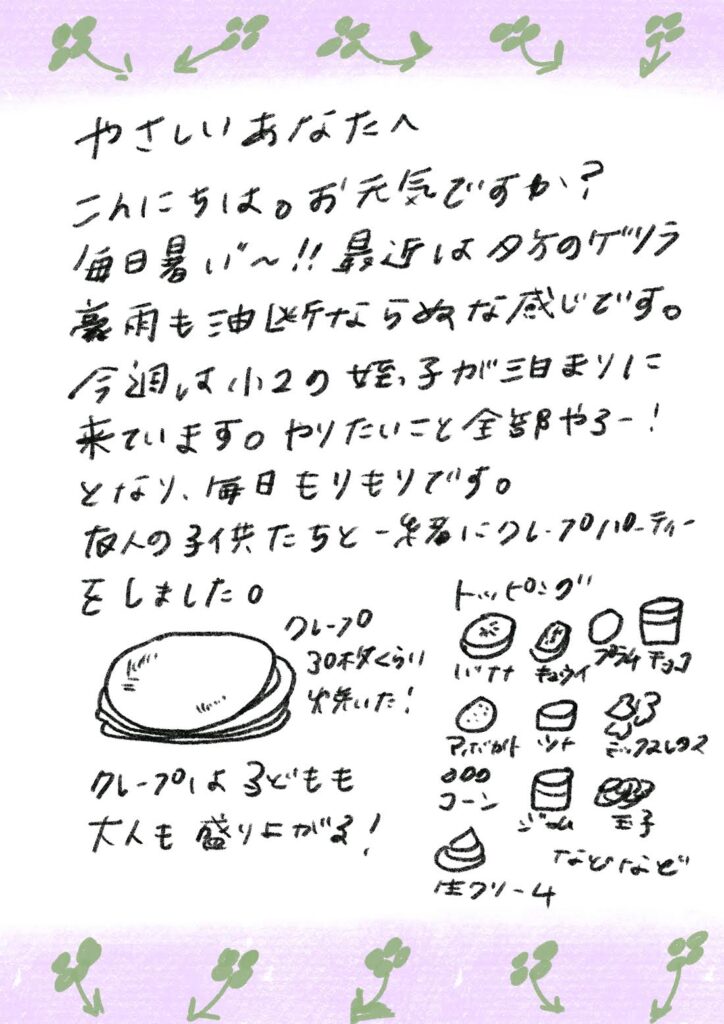 やさしいあなたへ
こんにちは。お元気ですか?
毎日暑い゛〜!!最近は夕方のゲリラ
豪雨も油断ならぬな感じです。
今週は小2の姪っ子が泊まりに
来ています。やりたいこと全部やろー!
となり、毎日もりもりです。
友人の子供たちと一緒にクレープパーティー
をしました。
クレープ
30枚くらい
焼いた!
クレープは子どもも
大人も盛り上がる!
トッピング
バナナ
キュウイ
プラム
チョコ
アボガド
ツナ
ミックスレタス
コーン
ジャム
玉子
生クリーム
などなど